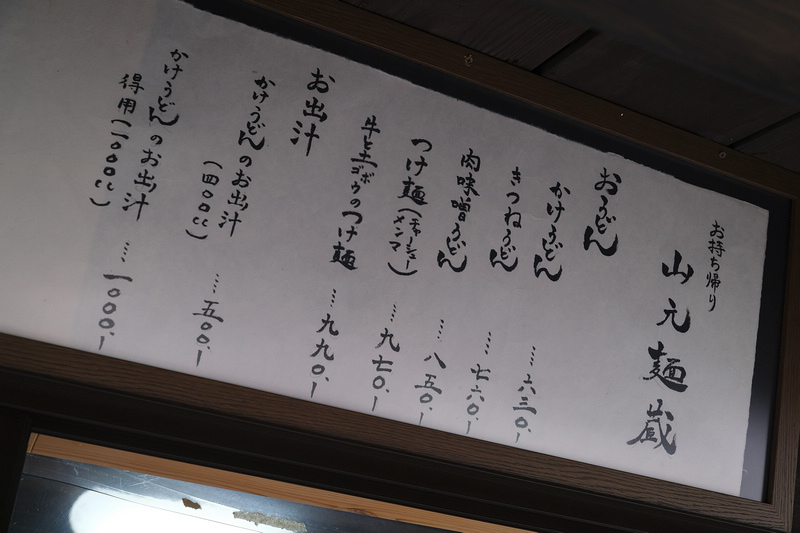 お持ち帰り
山元麺蔵
おうどん
かけうどん …. 六三〇.ー
きつねうどん …. 七六〇.ー
肉味噌うどん …. 八五〇.ー
つけ麺(チャーシューメンマ) …. 九七〇.ー
牛と土ゴボウのつけ麺 …. 九九〇.ー
お出汁
かけうどんのお出汁
(四〇〇cc) …. 五〇〇.ー
かけうどんのお出汁
得用(一〇〇〇cc) …. 一〇〇〇.ー